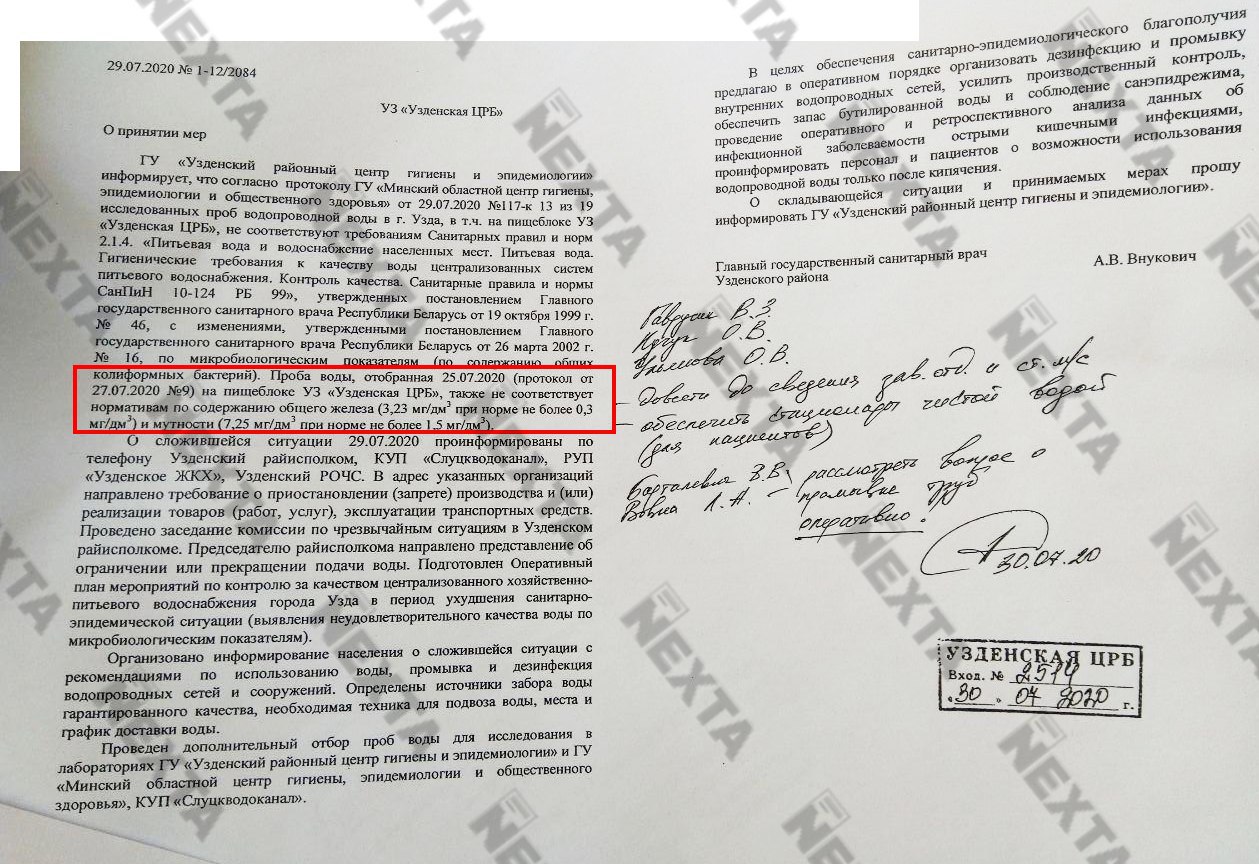 29.07.2020 № 1-12/2084
УЗ «Узденская ЦРБ»
О принятии мер
ГУ «Узденский районный центр гигиены и эпидемиологии»
информирует, что согласно протоколу ГУ «Минский областной центр гигиены,
эпидемиологии и общественного здоровья» от 29.07.2020 №117-к 13 из 19
исследованных проб водопроводной воды в г. Узда, в т.ч. на пищеблоке УЗ
«Узденская ЦРБ», не соответствуют требованиям Санитарных правил и норм
2.1.4. «Питьевая вода и водоснабжение населенных мест. Питьевая вода.
Гигиенические требования к качеству воды централизованных систем
питьевого водоснабжения. Контроль качества. Санитарные правила и нормы
СанПиН 10-124 РБ 99», утвержденных постановлением Главного
государственного санитарного врача Республики Беларусь от 19 октября 1999 г.
№ 46, с изменениями, утвержденными постановлением Главного
государственного санитарного врача Республики Беларусь от 26 марта 2002 г.
№ 16, по микробиологическим показателям (по содержанию общих
колиформных бактерий). Проба воды, отобранная 25.07.2020 (протокол от
27.07.2020 №9) на пищеблоке УЗ «Узденская ЦРБ», также не соответствует
нормативам по содержанию общего железа (3,23 мг/дм³ при норме не более 0,3
мг/дм³) и мутности (7,25 мг/дм³ при норме не более 1,5 мг/дм³).
О сложившейся ситуации 29.07.2020 проинформированы по
телефону Узденский райисполком, КУП «Слуцкводоканал», РУП
«Узденское ЖКХ», Узденский РОЧС. В адрес указанных организаций
направлено требование о приостановлении (запрете) производства и (или)
реализации товаров (работ, услуг), эксплуатации транспортных средств.
Проведено заседание комиссии по чрезвычайным ситуациям в Узденском
райисполкоме. Председателю райисполкома направлено представление об
ограничении или прекращении подачи воды. Подготовлен Оперативный
план мероприятий по контролю за качеством централизованного хозяйственно-
питьевого водоснабжения города Узда в период ухудшения санитарно-
эпидемической ситуации (выявления неудовлетворительного качества воды по
микробиологическим показателям).
Организовано информирование населения о сложившейся ситуации с
рекомендациями по использованию воды, промывка и дезинфекция
водопроводных сетей и сооружений. Определены источники забора воды
гарантированного качества, необходимая техника для подвоза воды, места и
график доставки воды.
Проведен дополнительный отбор проб воды для исследования в
лабораториях ГУ «Узденский районный центр гигиены и эпидемиологии» и ГУ
«Минский областной центр гигиены, эпидемиологии и общественного
здоровья», КУП «Слуцкводоканал».
В целях обеспечения санитарно-эпидемиологического благополучия
предлагаю в оперативном порядке организовать дезинфекцию и промывку
внутренних водопроводных сетей, усилить производственный контроль,
обеспечить запас бутилированной воды и соблюдение санэпидрежима,
проведение оперативного и ретроспективного анализа данных об
инфекционной заболеваемости острыми кишечными инфекциями,
проинформировать персонал и пациентов о возможности использования
водопроводной воды только после кипячения.
О складывающейся ситуации и принимаемых мерах прошу
информировать ГУ «Узденский районный центр гигиены и эпидемиологии».
Главный государственный санитарный врач
Узденского района
А.В. Внукович
В.З.
О.В.
О.В.
– довести до сведения зав. отд. и ст. м/с
– обеспечить стационары чистой водой
(для пациентов)
В.В. рассмотреть вопрос о
Л.А. – промывке труб
оперативно.
30.07.20
УЗДЕНСКАЯ ЦРБ
Вход. № 2514
«30» 07 2020 г.
NEXTA